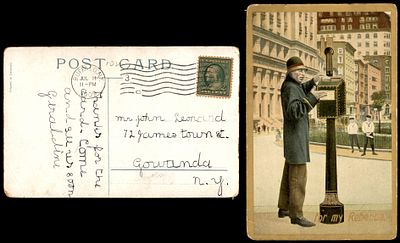 POST CARD
JUL 14
11-PM
3
thanks for the
card. Come
and see us soon
Geraldine
mr john Leonard
72 Jamestown St.
Gowanda
N.Y.
For my Rebecca